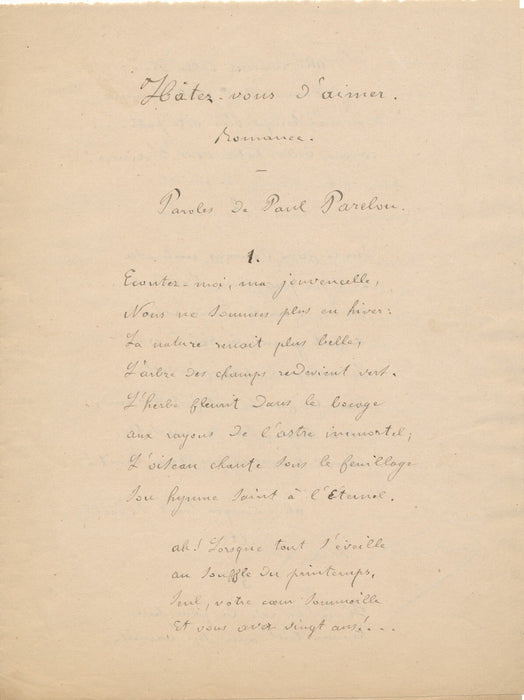 Hâtez-vous d'aimer.
Romance.
Paroles de Paul Parelon.
1.
Ecoutez-moi, ma jouvencelle,
Nous ne sommes plus en hiver:
La nature renait plus belle;
L'arbre des champs redevient vert.
L'herbe fleurit dans le bocage
aux rayons de l'astre immortel;
L'oiseau chante sous le feuillage
Son hymne saint à l'Eternel.
ah! Lorsque tout s'éveille
au souffle du printemps,
Seul, votre cœur sommeille
Et vous avez vingt ans!...